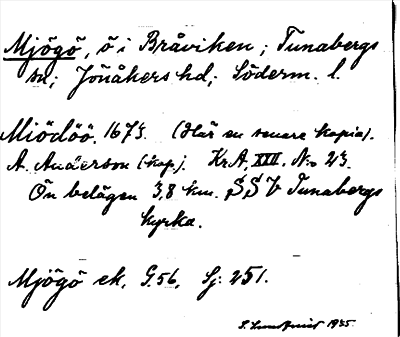 Mjögö, ö i Bråviken; Tunabergs
sn; Jönåkers hd; Söderm. l.
Miödöö. 1673. (Här en senare kopia).
A. Anderson (kop). Kr.A, XIII. No 23.
Ön belägen 3,8 km. SSV Tunabergs
kyrka.
Mjögö ek. G.56, Sj: 251.
S. Lundqvist 1935